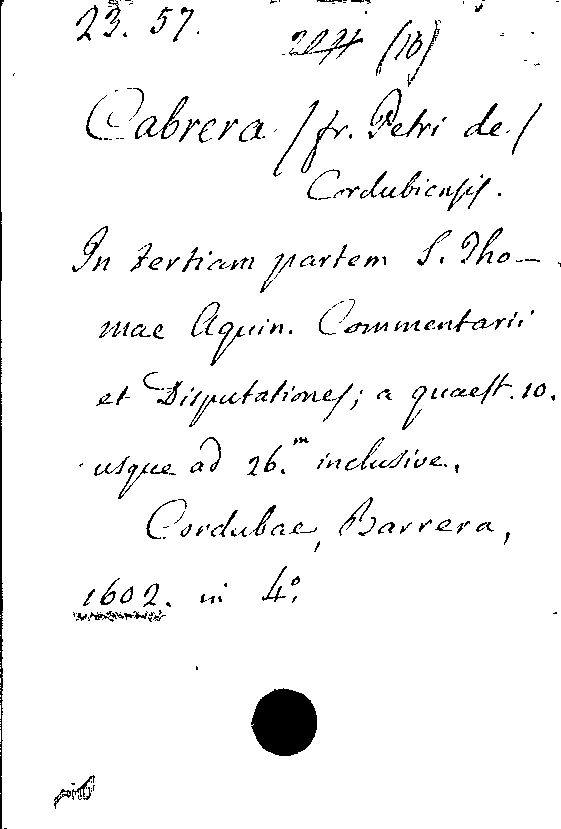 23. 57.
(1b)
Cabrera /fr. Petri de/
Cordubiensis.
In tertiam partem S. Tho-
mae Aquin. Commentarii
et Disputationes; a quaest. 10.
usque ad 26.m inclusive.
Cordubae, Barrera,
1602. in 4o.